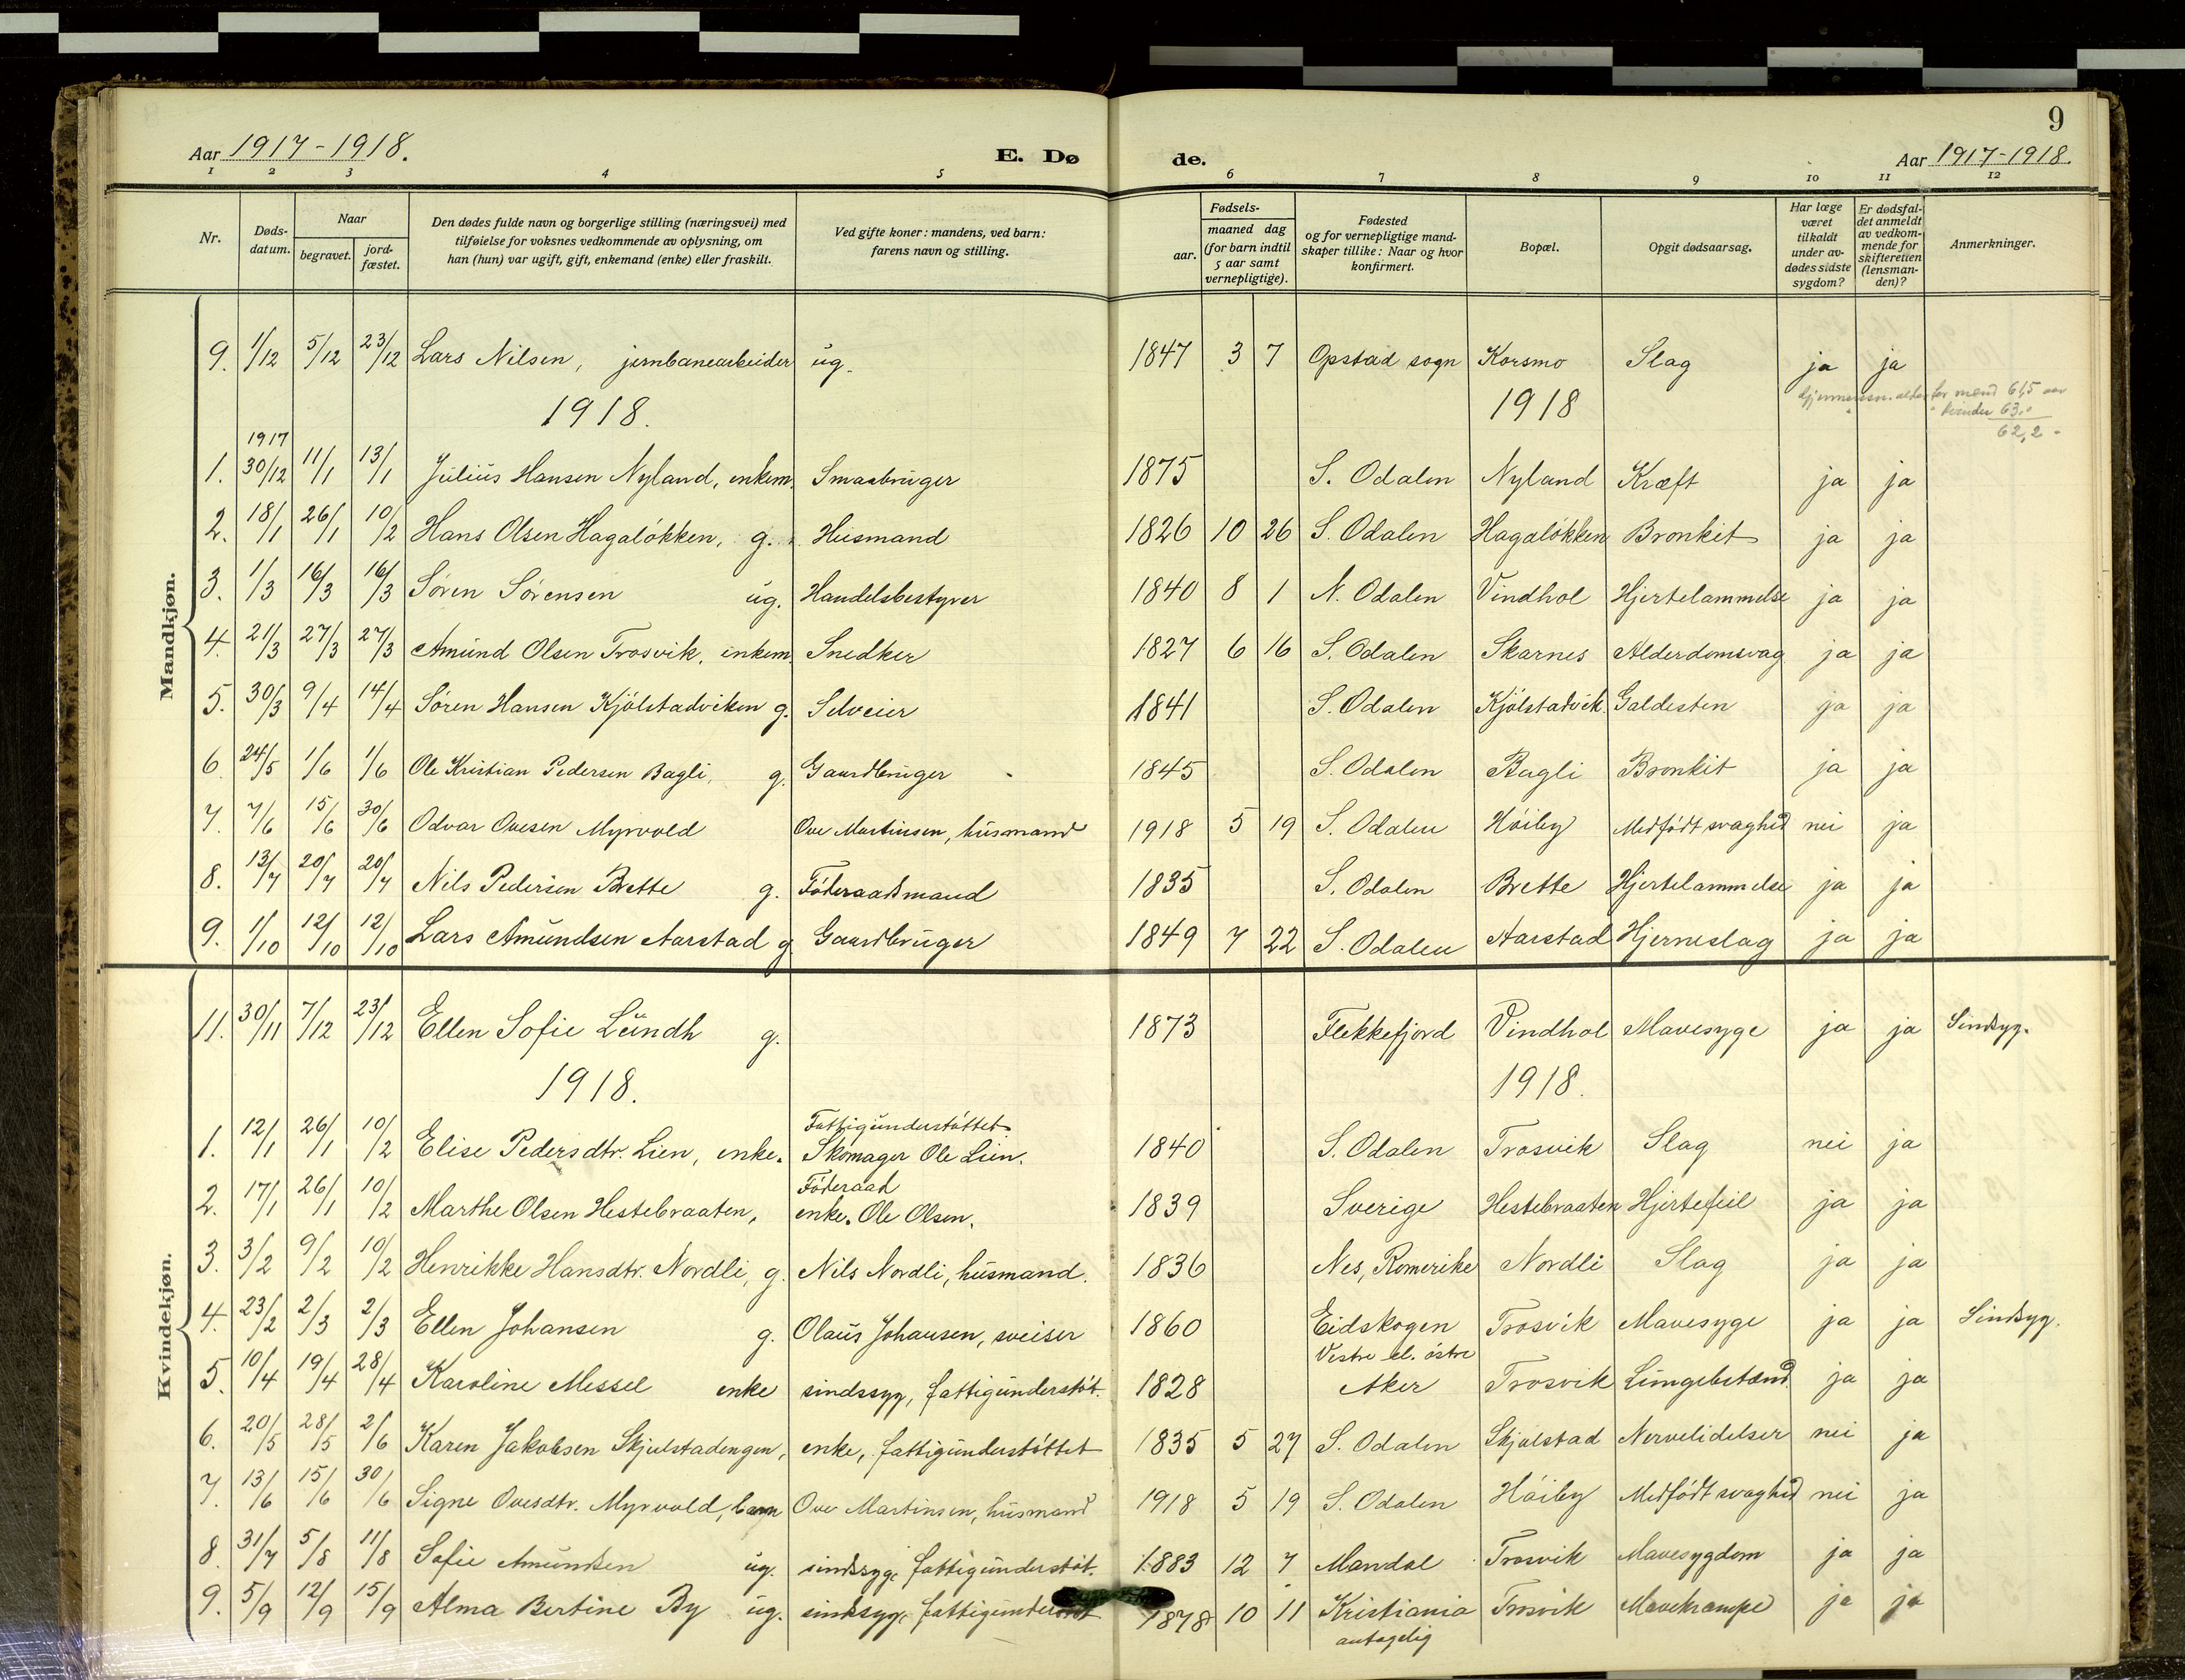 9
Aar 1917-1918. E. Dø de. Aar 1917-1918.
1 2 3 4 5 6 7 8 9 10 11 12
Nr. Døds-datum. Naar begravet. jord-fæstet. Den dødes fulde navn og borgerlige stilling (næringsvei) med tilføielse for voksnes vedkommende av oplysning, om han (hun) var ugift, gift, enkemand (enke) eller fraskilt. Ved gifte koner: mandens, ved barn: farens navn og stilling. Fødsels- aar. maaned dag (for barn indtil 5 aar samt vernepligtige). Fødested og for vernepligtige mand-skaper tillike: Naar og hvor konfirmert. Bopæl. Opgit dødsaarsag. Har læge været tilkaldt under av-dødes sidste sygdom? Er dødsfal-det anmeldt av vedkom-mende for skifteretten (lensman-den)? Anmerkninger.
Mandkjøn.
9. 1/12 5/12 23/12 Lars Nilsen, jernbanearbeider ug. 1847 3 7 Opstad sogn Korsmo Slag ja ja
1918. 1918 alder for mænd 61,5 aar
" kvinder 63,0
62,2 -
1917
1. 30/12 11/1 13/1 Julius Hansen Nyland, enkem. Smaabruger 1875 S. Odalen Nyland Kræft ja ja
2. 18/1 26/1 10/2 Hans Olsen Hagaløkken, g. Husmand 1826 10 26 S. Odalen Hagaløkken Bronkit ja ja
3. 1/3 16/3 16/3 Søren Sørensen ug. Handelsbestyrer 1840 8 1 N. Odalen Vindhol Hjertelammelse ja ja
4. 21/3 27/3 27/3 Amund Olsen Trosvik, enkem. Snedker 1827 6 16 S. Odalen Skarnes Alderdomsvag ja ja
5. 30/3 9/4 14/4 Søren Hansen Kjølstadviken g. Selveier 1841 S. Odalen Kjølstadvik. Galdesten ja ja
6 24/5 1/6 1/6 Ole Kristian Pedersen Bagli, g. Gaardbruger 1845 S. Odalen Bagli Bronkit ja ja
7. 7/6 15/6 30/6 Odvar Ovesen Myrvold Ove Martinsen, husmand 1918 5 19 S. Odalen Høiby Medfødt svaghed nei ja
8. 13/7 20/7 20/7 Nils Pedersen Brette g. Føderaadsmand 1835 S. Odalen Brette Hjertelammelse ja ja
9. 1/10 12/10 12/10 Lars Amundsen Aarstad g. Gaardbruger 1849 7 22 S. Odalen Aarstad Hjerneslag ja ja
Kvindekjøn.
11. 30/11 7/12 23/12 Ellen Sofie Lundh g. 1873 Flekkefjord Vindhol Mavesyge ja ja Sindsyg.
1918. 1918.
Fattigunderstøttet
1. 12/1 26/1 10/2 Elise Pedersdtr. Lien, enke. Skomager Ole Lien. 1840 S. Odalen Trosvik Slag nei ja
Føderaad
2. 17/1 26/1 10/2 Marthe Olsen Hestebraaten, enke. Ole Olsen. 1839 Sverige Hestebraaten Hjertefeil ja ja
3. 3/2 9/2 10/2 Henrikke Hansdtr. Nordli, g. Nils Nordli, husmand. 1836 Nes, Romerike Nordli Slag ja ja
4. 23/2 2/3 2/3 Ellen Johansen g. Olaus Johansen, sveiser 1860 Eidskogen Trosvik Mavesyge ja ja Sindsyg.
Vestre el. østre
5. 10/4 19/4 28/4 Karoline Messel enke sindssyg, fattigunderstøt. 1828 Aker Trosvik Lungebetænd. ja ja
6. 20/5 28/5 2/6 Karen Jakobsen Skjulstadengen, enke, fattigunderstøttet 1835 5 27 S. Odalen Skjølstad Nervelidelser nei ja
7. 13/6 15/6 30/6 Signe Ovesdtr. Myrvold, barn Ove Martinsen, husmand 1918 5 19 S. Odalen Høiby Medfødt svaghed nei ja
8. 31/7 5/8 11/8 Sofie Amundsen ug. sindssyg, fattigunderstøt. 1883 12 7 Mandal Trosvik Mavesygdom ja ja
9. 5/9 12/9 15/9 Alma Bertine By ug. sindssyg, fattigunderstøt 1878 10 11 Kristiania Trosvik Mavekrampe ja ja
antagelig